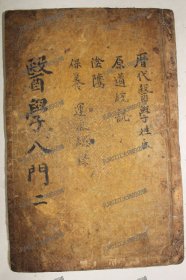 曆代醫學姓氏
原道統說
陰隲
保養 運氣總論
醫學入門 二